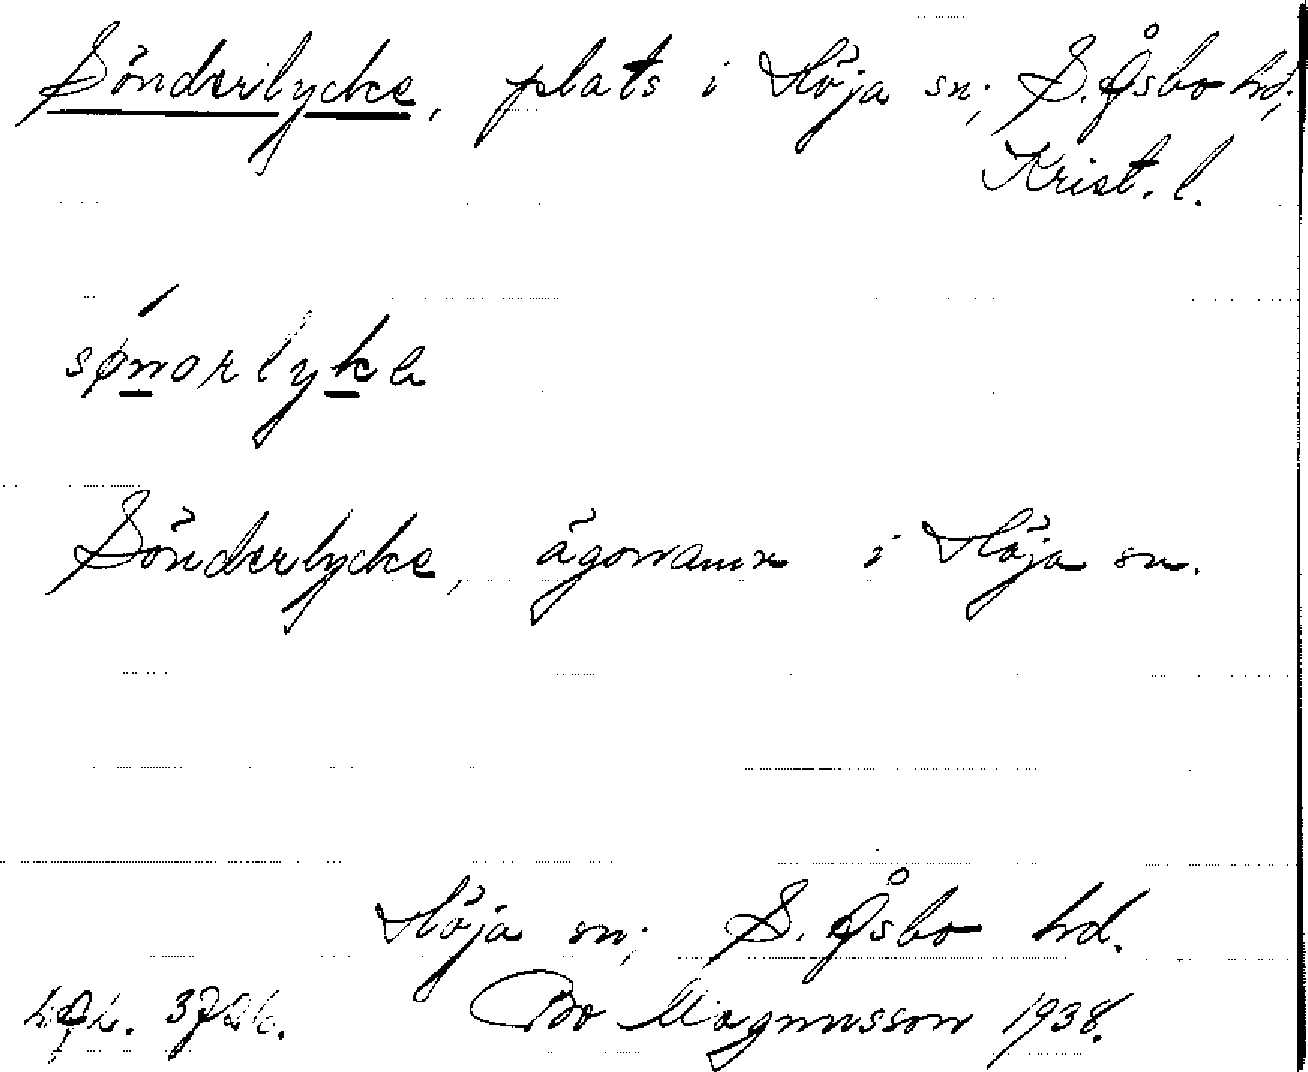 Sönderlycke, plats i Höja sn; S. Åsbo hd;
Krist. l.
sønorlyka
Sönderlycke, ägonamn i Höja sn.
Höja sn; S. Åsbo hd.
Bo Magnusson 1938.